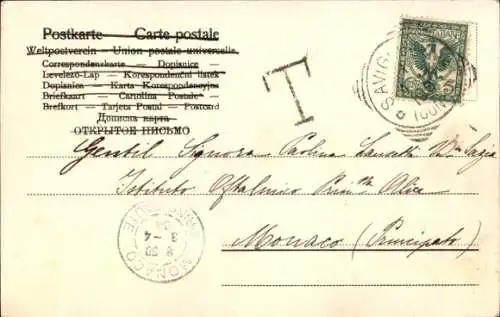 Postkarte — Carte postale
Weltpostverein — Union postale universelle
Correspondenzkarte — Dopisnice
Levelező-Lap — Korespondenční lístek
Dopisnica — Karta Korespondencyjna
Briefkaart — Cartolina Postale
Brefkort — Tarjeta Postal — Postcard
Дописна карта
ОТКРЫТОЕ ПИСЬМО
T
SAVIG
(CUN
Gentil Signora Paolina
Istituto Oftalmico Alice
Monaco (Principato)
3 - 4
MONACO